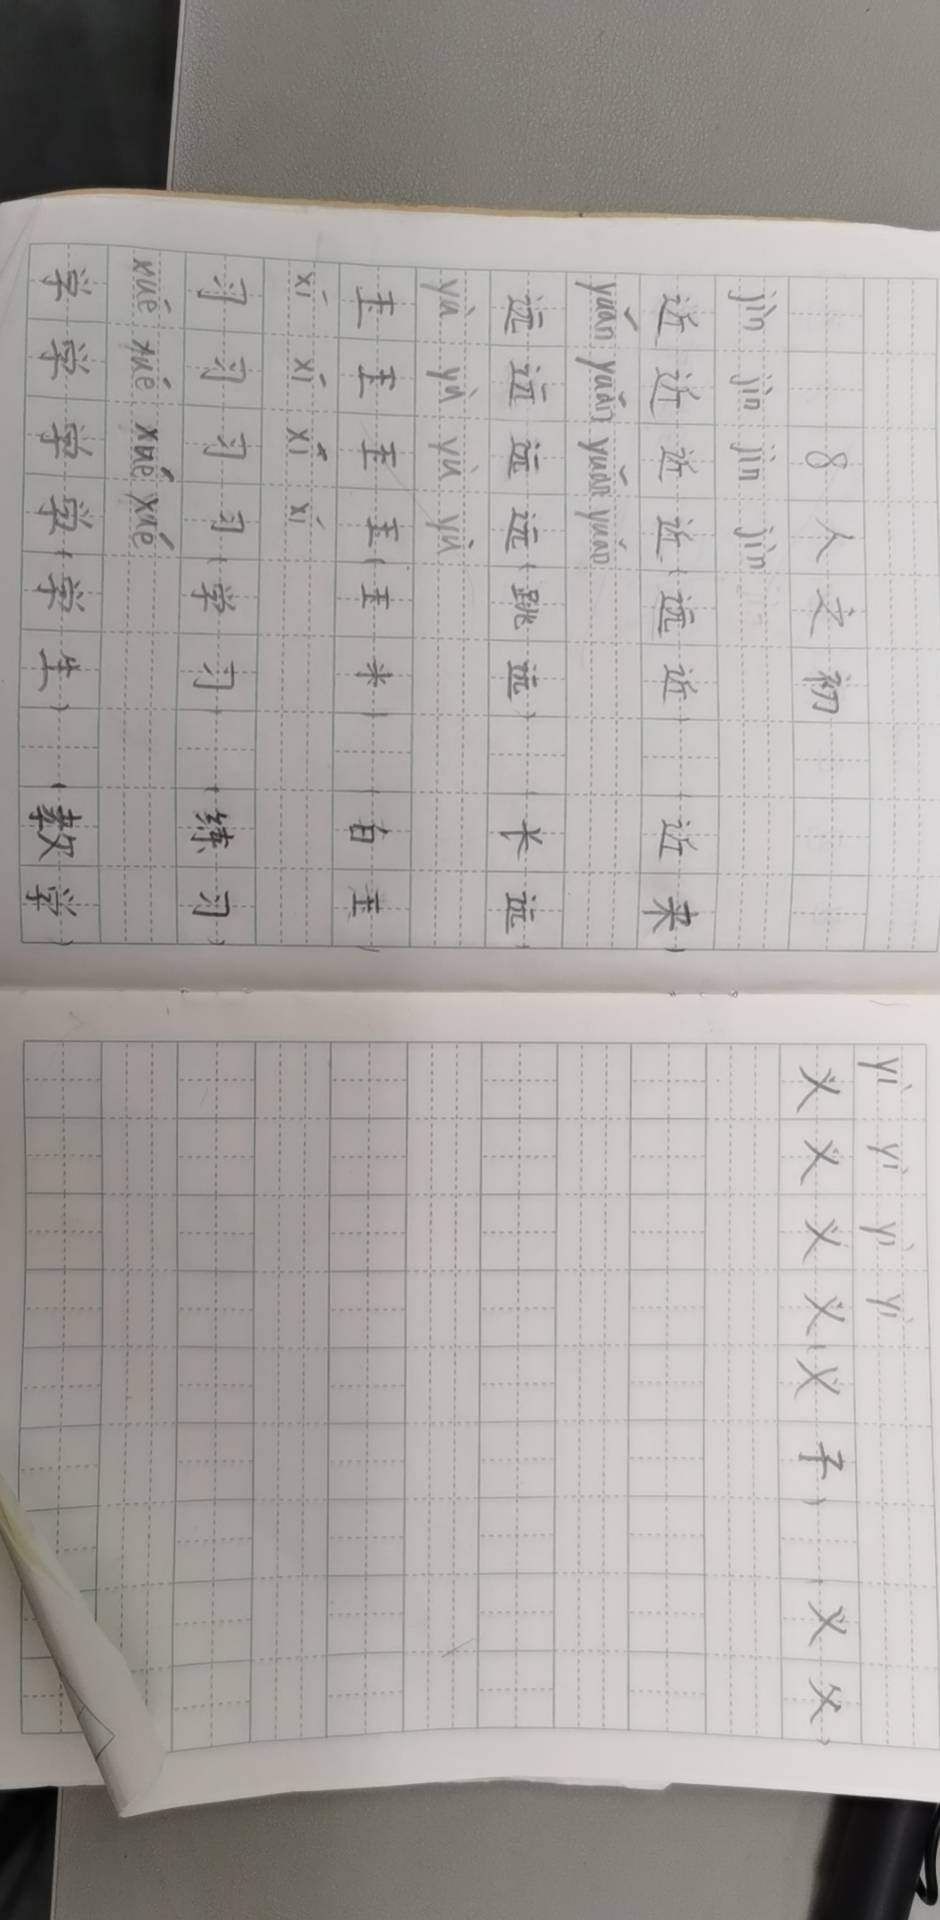 8 人之初
jìn jìn jìn jìn
近近近近(远近) (近来)
yuǎn yuǎn yuǎn yuǎn
远远远远(跳远) (长远)
yù yù yù yù
玉玉玉玉(玉米) (白玉)
xí xí xí xí
习习习习(学习) (练习)
xué xué xué xué
学学学学(学生) (教学)
yì yì yì yì
义义义义(义子) (义父)